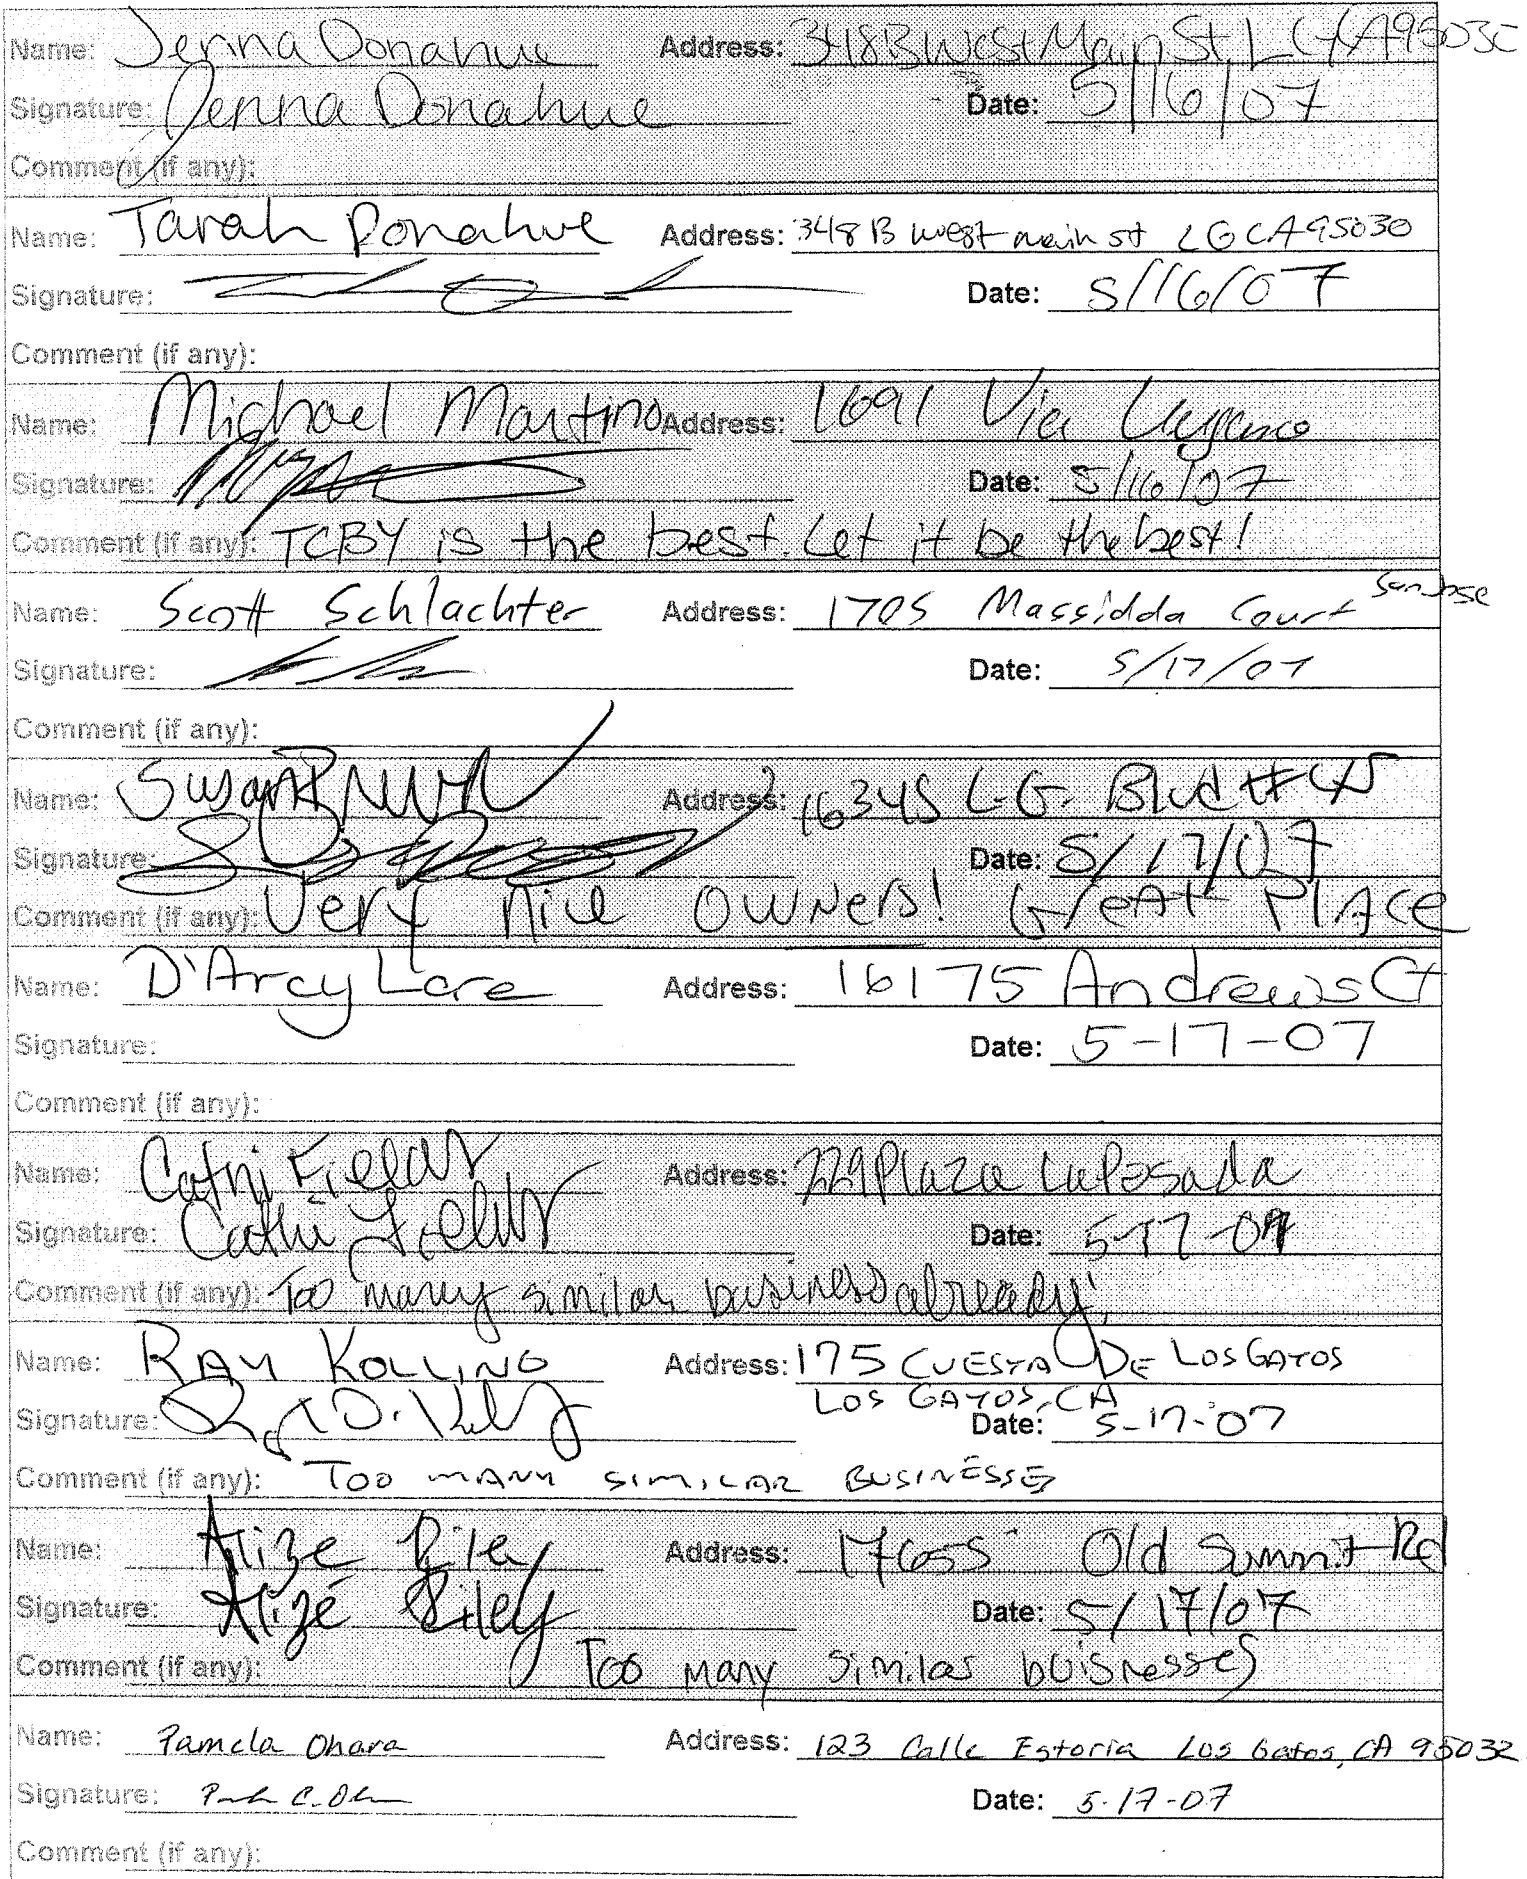 Name: Jenna Donahue Address: 348B West Main St, LG CA 95030
Signature: Jenna Donahue Date: 5/16/07
Comment (if any):
Name: Tarah Donahue Address: 348 B west main st LG CA 95030
Signature: Date: 5/16/07
Comment (if any):
Name: Michael Martino Address: 1691 Via
Signature: Date: 5/16/07
Comment (if any): TCBY is the best. Let it be the best!
Name: Scott Schlachter Address: 1705 Massidda Court San Jose
Signature: Date: 5/17/07
Comment (if any):
Name: Susan Address: 16345 L.G. Blvd #45
Signature: Date: 5/17/07
Comment (if any): Very nice owners! Great Place
Name: D'Arcy Lore Address: 16175 Andrews Ct
Signature: Date: 5-17-07
Comment (if any):
Name: Cathi Fields Address: 229 Plaza La Posada
Signature: Cathi Fields Date: 5-17-07
Comment (if any): Too many similar business already!
Name: Ray Kolling Address: 175 Cuesta De Los Gatos
Los Gatos, CA
Signature: Date: 5-17-07
Comment (if any): Too many similar businesses
Name: Alize Riley Address: 17655 Old Summit Rd
Signature: Alizé Riley Date: 5/17/07
Comment (if any): Too many similar buisnesses
Name: Pamela Ohara Address: 123 Calle Estoria Los Gatos, CA 95032
Signature: Date: 5-17-07
Comment (if any):